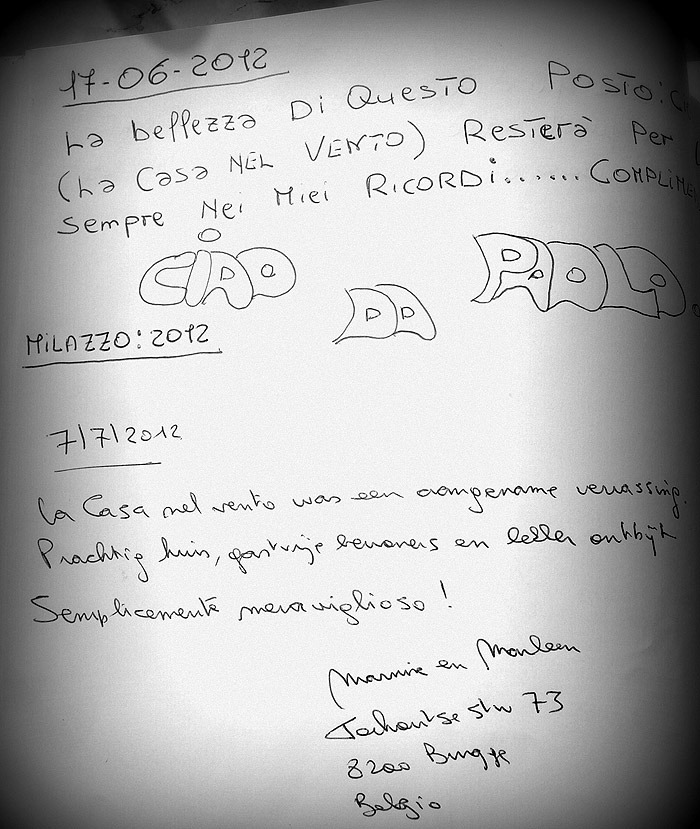 17-06-2012
La bellezza Di Questo Posto:
(La Casa NEL VENTO) Resterà Per
Sempre Nei Miei RICORDi...... COMPLIME
CIAO DA PAOLO
MiLAZZO: 2012
7/7/2012
La Casa nel vento was een aangename verrassing.
Prachtig huis, gastvrije bewoners en lekker ontbijt
Semplicemente meraviglioso!
en Marleen
73
8200 Brugge
Belgio